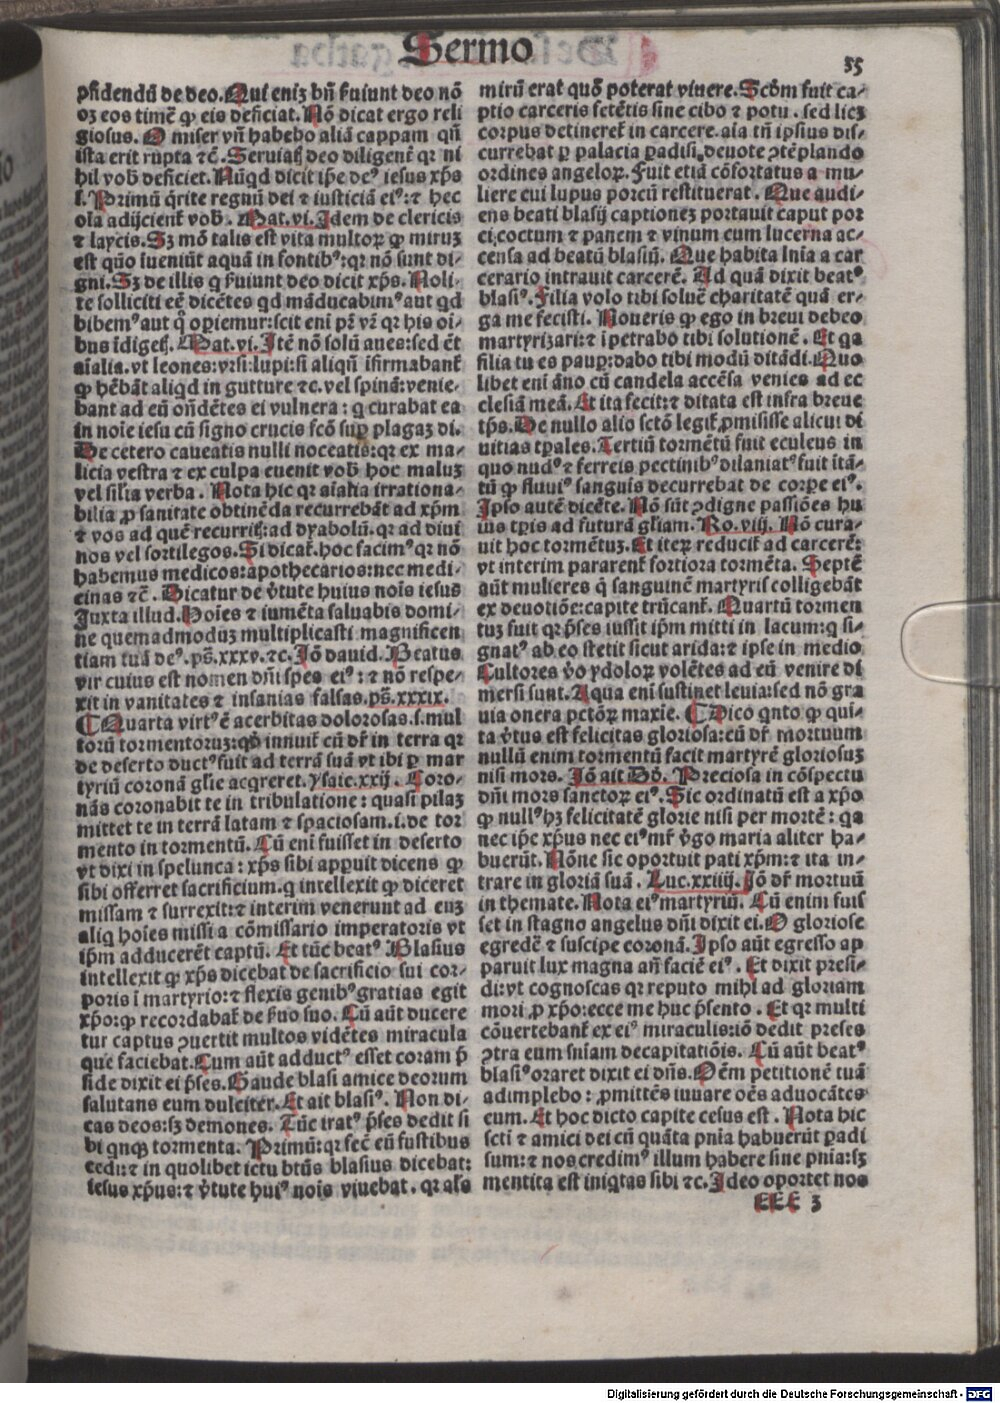 Sermo
55
pfidendū de deo. Qui eniz bn̄ fuiunt deo nō
oz eos timē ꝙ eis deficiat. Nō dicat ergo reli
giosus. O miser vn̄ habebo aliā cappam qn̄
ista erit rupta ⁊c̄. Seruiatꝭ deo diligent̄ qꝛ ni
hil vob̄ deficiet. Nūqd dicit ip̄e deꝰ iesus xp̄s
ſ. Primū q̄rite regnū dei ⁊ iusticiā eiꝰ: ⁊ hec
oīa adijcient̄ vob̄. Mat. vi. Idem de clericis
⁊ laycis. Sꝫ mō talis est vita multoꝝ ꝙ miruꝫ
est qūo īueniūt aquā in fontibꝰ: qꝛ nō sunt di-
gni. Sꝫ de illis q̄ fuiunt deo dicit xp̄s. Noli-
te solliciti eē dicētes qd māducabimꝰ aut qd
bibemꝰ aut q̊ oꝑiemur: scit eni pr̄ vr̄ qꝛ his oī-
bus īdigetꝭ. Mat. vi. Itē nō solū aues: sed ēt
aīalia. vt leones: vrsi: lupi: si aliqn̄ īfirmabant̄
ꝙ hēbāt aliqd in gutture ⁊c. vel spinā: venie-
bant ad eū on̄dētes ei vulnera: q̄ curabat ea
in noīe iesu cū signo crucis fcō suꝑ plagaꝫ di.
De cetero caueatis nulli noceatis: qꝛ ex ma-
licia vestra ⁊ ex culpa euenit vob̄ hoc maluꝫ
vel sīlia verba. Nota hic qꝛ aīalia irrationa-
bilia ꝓ sanitate obtinēda recurrebāt ad xp̄m
⁊ vos ad quē recurritꝭ: ad dyabolū. qꝛ ad diui
nos vel sortilegos. Si dicat̄. hoc facimꝰ qꝛ nō
habemus medicos: apothecarios: nec medi-
cinas ⁊c̄. Dicatur de v̓tute huius noīs iesus
Iuxta illud. Hoīes ⁊ iumēta saluabis domi-
ne quemadmoduꝫ multiplicasti magnificen
tiam tuā deꝰ. ps̄. xxxv. ⁊c. Iō dauid. Beatus
vir cuius est nomen dn̄i spes eiꝰ: ⁊ nō respe-
xit in vanitates ⁊ insanias falsas. ps̄. xxxix.
¶ Quarta virtꝰ ē acerbitas dolorosas. ſ. mul
torū tormentoruꝫ: qd̓ innuit̄ cū dr̄ in terra qꝛ
de deserto ductꝰ fuit ad terrā suā vt ibi ꝑ mar
tyriū coronā glīe acq̄reret. ysaie. xxij. Coro-
nās coronabit te in tribulatione: quasi pilaꝫ
mittet te in terrā latam ⁊ spaciosam. i. de tor
mento in tormentū. Cū eni fuisset in deserto
vt dixi in spelunca: xp̄s sibi apꝑuit dicens ꝙ
sibi offerret sacrificium. q̄ intellexit ꝙ diceret
missam ⁊ surrexit: ⁊ interim venerunt ad euꝫ
aliq̄ hoīes missi a cōmissario imperatoris vt
ip̄m adducerēt captū. Et tūc beatꝰ Blasius
intellexit ꝙ xp̄s dicebat de sacrificio sui cor-
poris ī martyrio: ⁊ flexis genibꝰ gratias egit
xp̄o: ꝙ recordabat̄ de fuo suo. Cū aūt ducere
tur captus ꝯuertit multos vidētes miracula
que faciebat. Cum aūt adductꝰ esset coram p̄
side dixit ei p̄ses. Gaude blasi amice deorum
salutans eum dulciter. Et ait blasiꝰ. Non di-
cas deos: sꝫ demones. Tūc iratꝰ p̄ses dedit si
bi qnqꝫ tormenta. Primū: qꝛ fec̄ eū fustibus
cedi: ⁊ in quolibet ictu btūs blasius dicebat:
iesus xp̄us: ⁊ v̓tute huiꝰ noīs viuebat. qꝛ als̄
mirū erat quō poterat viuere. Scd̓m fuit ca-
ptio carceris fetētis sine cibo ⁊ potu. sed licꝫ
corpus detineret̄ in carcere. aīa tn̄ ipsius dis-
currebat ꝑ palacia ꝑadisi. deuote ꝯtēplando
ordines angeloꝝ. Fuit etiā cōfortatus a mu-
liere cui lupus porcū restituerat. Que audi-
ens beati blasij captioneꝫ portauit caput por
ci: coctum ⁊ panem ⁊ vinum cum lucerna ac-
censa ad beatū blasiū. Que habita lnīa a car
cerario intrauit carcerē. Ad quā dixit beatꝰ
blasiꝰ. Filia volo tibi soluē charitatē quā er-
ga me fecisti. Noueris ꝙ ego in breui debeo
martyrizari: ⁊ īpetrabo tibi solutionē. Et qa
filia tu es pauꝑ: dabo tibi modū ditādi. Quo
libet eni āno cū candela accēsa venies ad ec
clesiā meā. Et ita fecit: ⁊ ditata est infra breue
tp̄s. De nullo alio sctō legit̄ ꝓmisisse alicui di
uitias tꝑales. Tertiū tormētū fuit eculeus in
quo nudꝰ ⁊ ferreis pectinibꝰ dilaniatꝰ fuit itā-
tū ꝙ fluuiꝰ sanguīs decurrebat de corꝑe eiꝰ.
Ipso autē dicēte. Nō sūt ꝯdigne passiōes hu
ius tp̄is ad futurā gl̄iam. Ro. viij. Nō cura-
uit hoc tormētuꝫ. Et iteꝝ reducit̄ ad carcerē:
vt interim pararent̄ fortiora tormēta. Septē
aūt mulieres q̄ sanguinē martyris colligebāt
ex deuotiōe: capite trūcant̄. Quartū tormen
tuꝫ fuit qꝛ p̄ses iussit ip̄m mitti in lacum: q̄ si-
gnatꝰ ab eo stetit sicut arida: ⁊ ipse in medio
Cultores v̓o ydoloꝝ volētes ad eū venire di
mersi sunt. Aqua eni sustinet leuia: sed nō gra
uia onera pctōꝝ maxīe. ¶ Dico qnto ꝙ qui-
ta v̓tus est felicitas gloriosa: cū dr̄ mortuum
nullū enim tormentū facit martyrē gloriosuꝫ
nisi mors. Iō ait Dd̓. Preciosa in cōspectu
dn̄i mors sanctoꝝ eiꝰ. Sic ordinatū est a xp̄o
ꝙ nullꝰ hꝫ felicitatē glorie nisi per mortē: qa
nec ip̄e xp̄us nec eiꝰ mr̄ v̓go maria aliter ha-
buerūt. Nōne sic oportuit pati xp̄m: ⁊ ita in-
trare in gloriā suā. Luc. xxiiij. Iō dr̄ mortuū
in themate. Nota eiꝰ martyriū. Cū enim fuis
set in stagno angelus dn̄i dixit ei. O gloriose
egredē ⁊ suscipe coronā. Ipso aūt egresso ap
paruit lux magna an̄ faciē eiꝰ. Et dixit presi-
di: vt cognoscas qꝛ reputo mihi ad gloriam
mori ꝓ xp̄o: ecce me huc p̄sento. Et qꝛ multi
cōuertebant̄ ex eiꝰ miraculis: iō dedit preses
ꝯtra eum sniam decapitatiōis. Cū aūt beatꝰ
blasiꝰ oraret dixit ei dn̄s. Oēm petitionē tuā
adimplebo: ꝓmittēs iuuare oēs aduocātes
eum. Et hoc dicto capite cesus est. Nota hic
scti ⁊ amici dei cū quāta pnīa habuerūt ꝑadi
sum: ⁊ nos credimꝰ illum habere sine pnīa: sꝫ
mentita est iniqtas sibi ⁊c. Ideo oportet nos
EEE 3
Digitalisierung gefördert durch die Deutsche Forschungsgemeinschaft - DFG